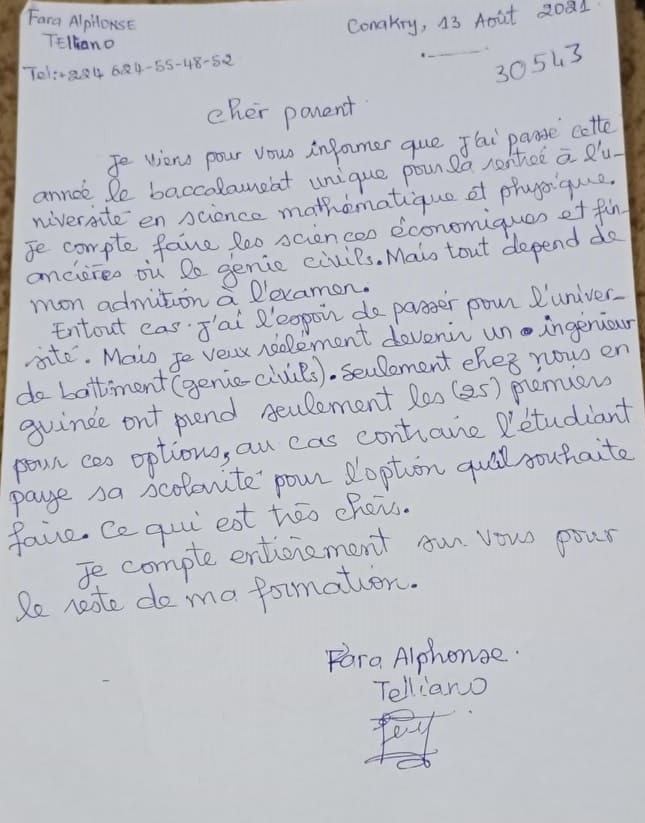 Fara Alphonse
Telliano
Tel:+224 624-55-48-52
Conakry, 13 Août 2021
30543
cher parent
Je viens pour vous informer que J'ai passé cette
année le baccalaureat unique pour la rentreé à l'u-
niversité en science mathématique et physique.
Je compte faire les sciences économiques et fin-
ancières ou le génie civils. Mais tout depend de
mon admition à l'examen.
Entout cas. J'ai l'espoir de passer pour l'univer-
sité. Mais Je veux réelement devenir un ingénieur
de battiment (genie-civils). Seulement chez nous en
guinée ont prend seulement les (25) premiers
pour ces options, au cas contraire l'étudiant
paye sa scolarité pour l'option qu'il souhaite
faire. Ce qui est très chers.
Je compte entièrement sur vous pour
le reste de ma formation.
Fara Alphonse.
Telliano